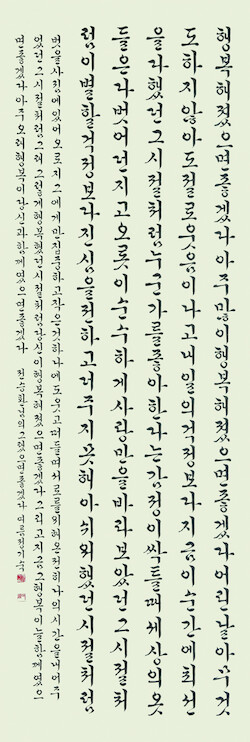 행복해졌으면좋겠다아주많이행복해졌으면좋겠다어린날아무것
도하지않아도절로웃음이나고내일의걱정보다지금이순간에최선
을다했던그시절처럼누군가를좋아한다는감정이싹틀때세상의옷
들은다벗어던지고오롯이순수하게사랑만을바라보았던그시절처
럼이별할걱정보다진심을전하고더주지못해아쉬워했던시절처럼
벗을사귐에있어오로지그에게만집중하고작은것하나에도웃고떠들며서로를위해온전히나의시간을내어주
었던그시절처럼그래그렇게행복했던시절처럼당신이행복해졌으면좋겠다그리고지금그행복이늘함께였으
면좋겠다아주오래행복이당신과함께였으면좋겠다 전승환님의그랬으면좋겠다